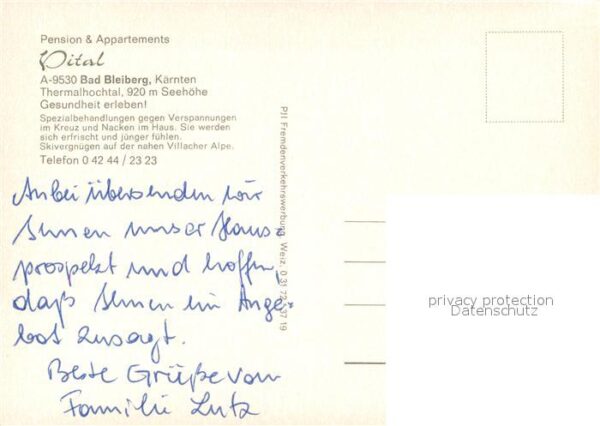 Pension & Appartements
Vital
A-9530 Bad Bleiberg, Kärnten
Thermalhochtal, 920 m Seehöhe
Gesundheit erleben!
Spezialbehandlungen gegen Verspannungen
im Kreuz und Nacken im Haus. Sie werden
sich erfrischt und jünger fühlen.
Skivergnügen auf der nahen Villacher Alpe.
Telefon 0 42 44 / 23 23
Anbei übersenden wir
Ihnen unser Haus=
prospekt und hoffen,
daß Ihnen ein Ange=
bot zusagt.
Beste Grüße von
Familie Lutz
Fremdenverkehrswerbung, Weiz, 0 31 72 - 37 19
privacy protection
Datenschutz